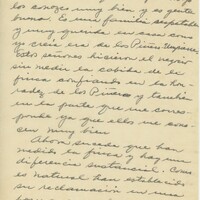 los conozco muy bien y es gente
buena. Es una familia respetable
y muy querida en esa zona
y creo era de los Piñero Limpiarres
Estos señores hicieron el negocio
sin medir la cabida de la
finca confiando en la hon-
radez de los Piñeros y también
en la parte que me corres-
ponde ya que ellos me cono-
cen muy bien
Ahora resulta que han
medido la finca y hay una
diferencia sustancial. Como
es natural han establecido
su reclamación en una